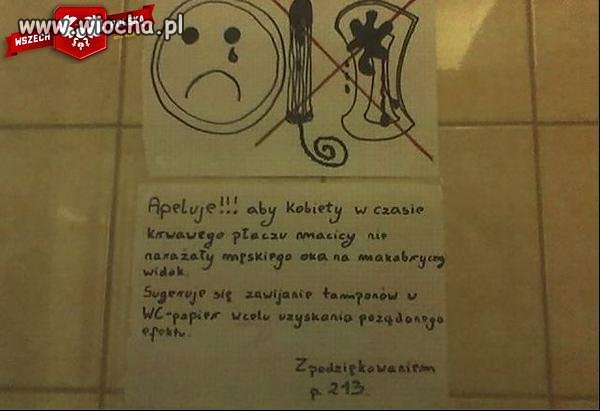 www.wiocha.pl
WSZECH
Apeluje!!! aby kobiety w czasie
krwawego płaczu macicy nie
narażały męskiego oka na makabryczny
widok.
Sugeruje się zawijanie tamponów w
WC-papier wcelu uzyskania pożądanego
efektu.
Z podziękowaniem
p. 213.